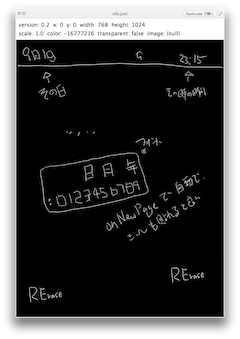 info.json
version: 0.2 x: 0 y: 0 width: 768 height: 1024
scale: 1.0 color: -16777216 transparent: false image: (null)
9月1日
23:15
その日
その時の時刻
フォント
日月年
:0123456789
on New Page で自動で
これも
RErase
RErase